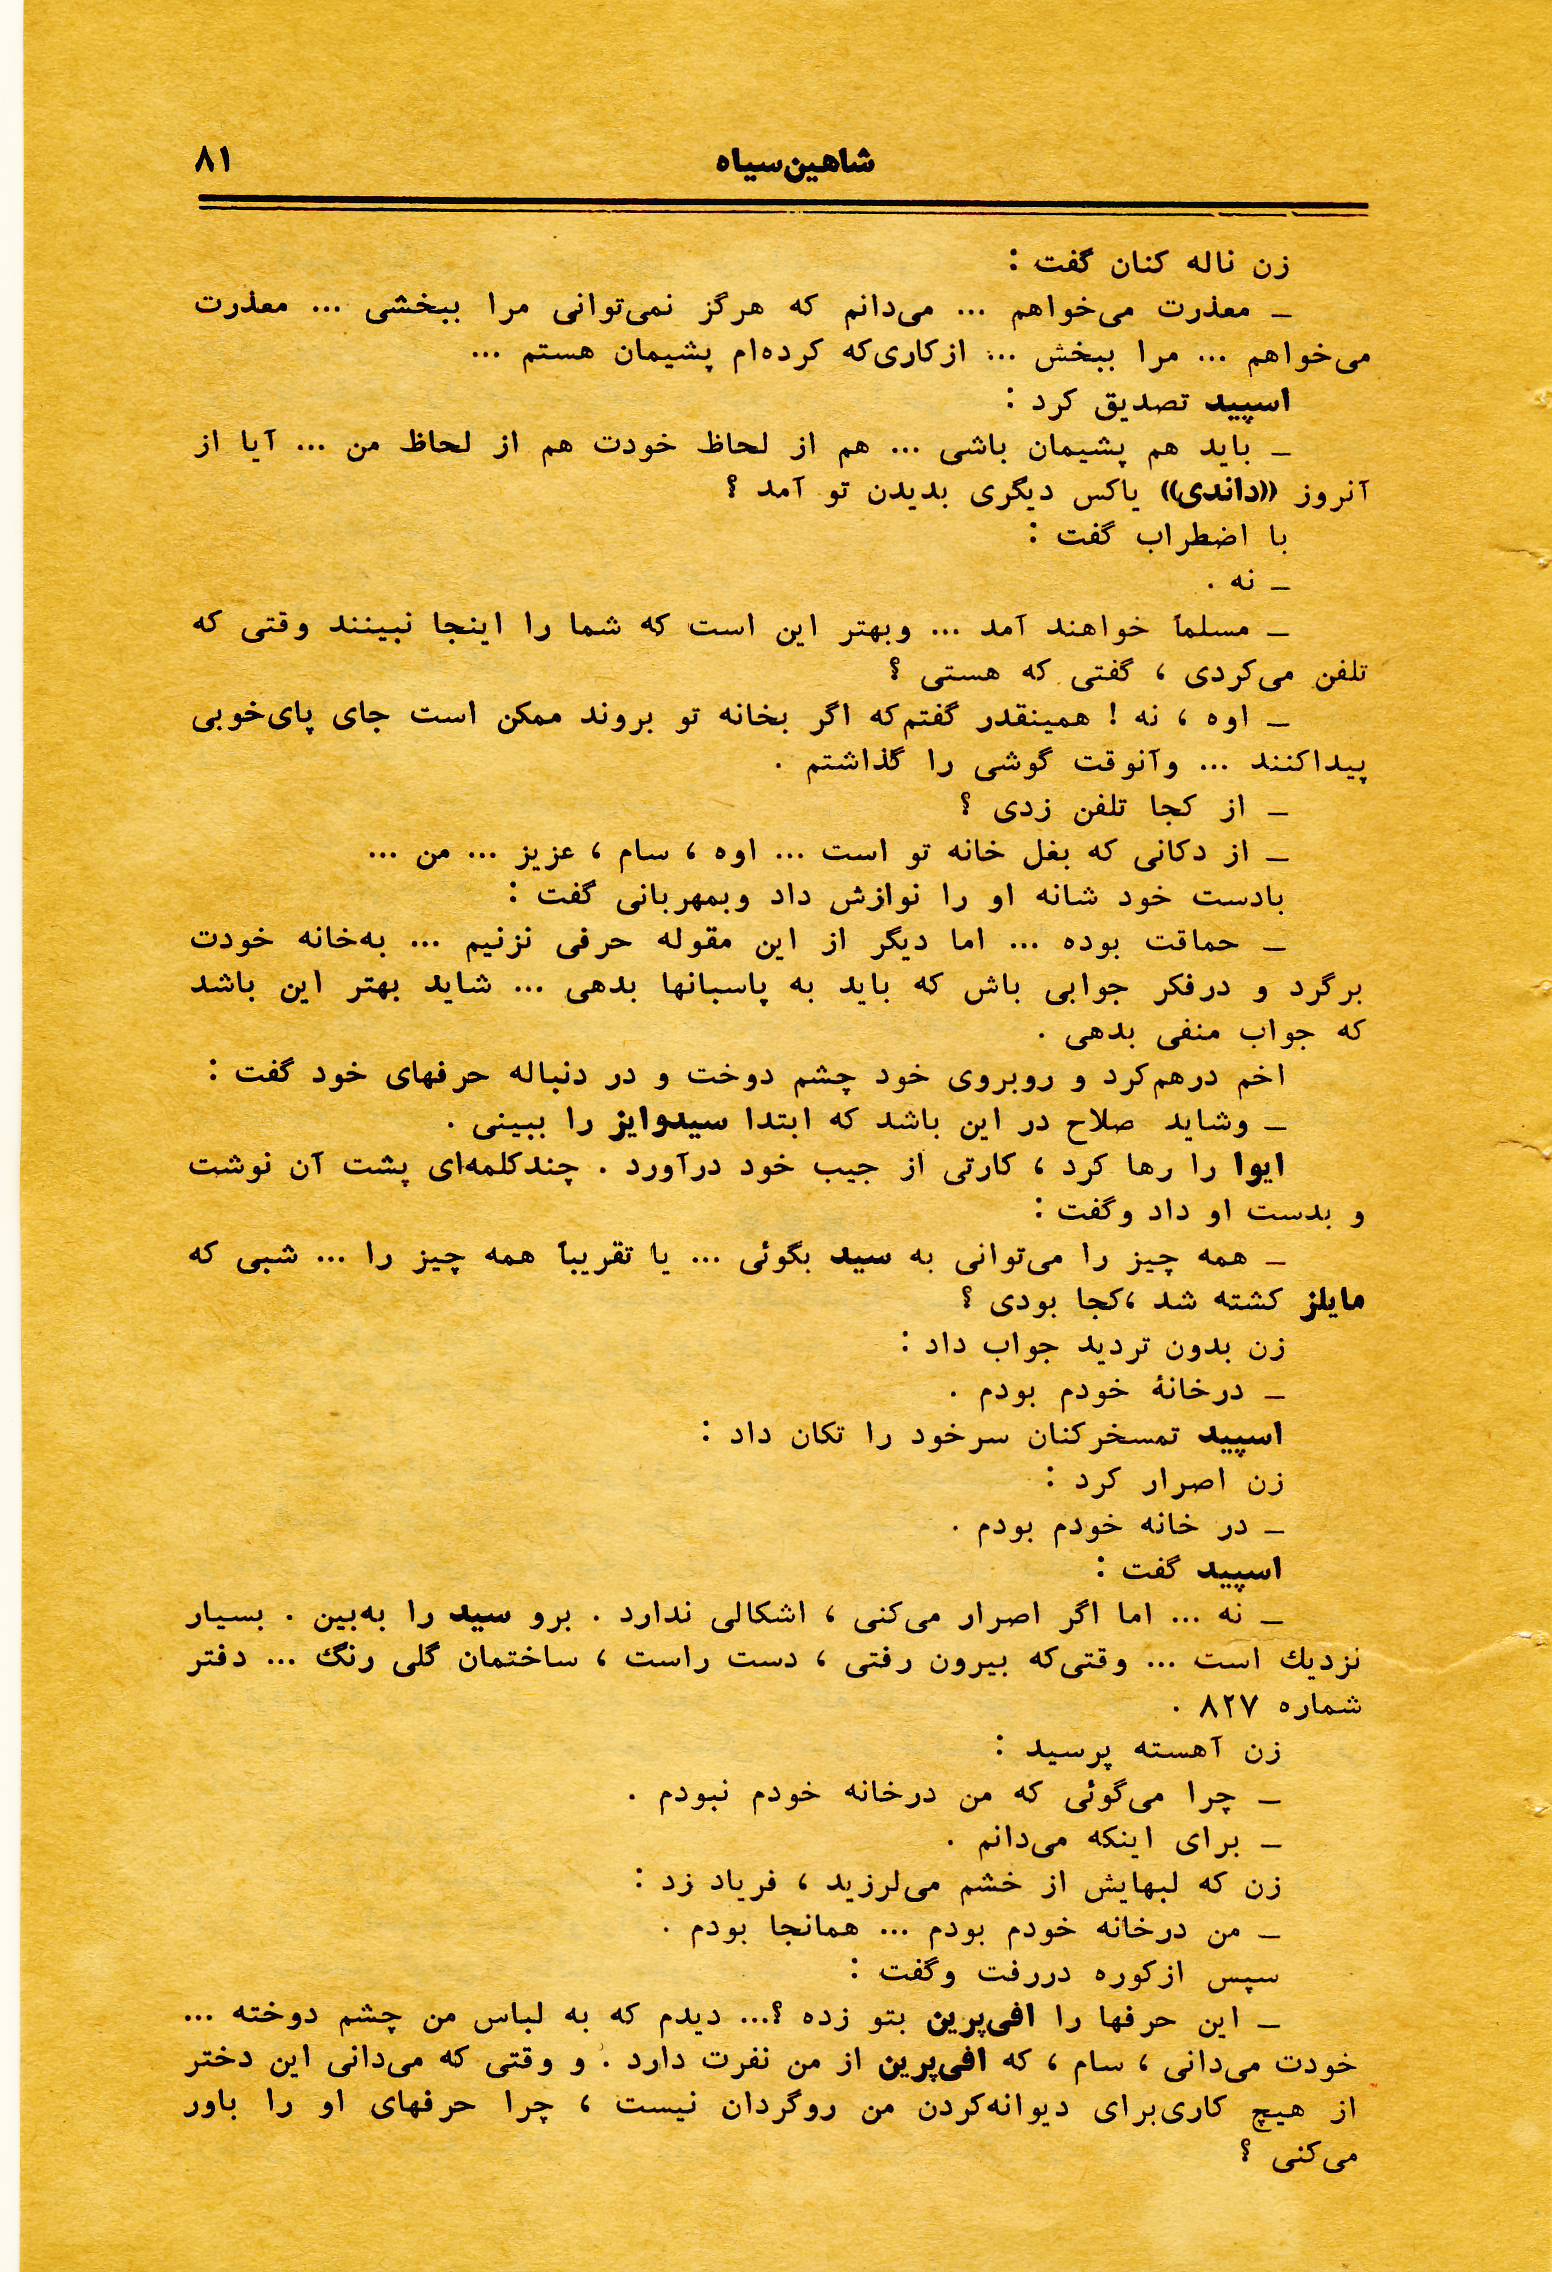 شاهین‌سیاه ۸۱
زن ناله کنان گفت :
ـ معذرت می‌خواهم ... می‌دانم که هرگز نمی‌توانی مرا ببخشی ... معذرت
می‌خواهم ... مرا ببخش ... ازکاری‌که کرده‌ام پشیمان هستم ...
اسپید تصدیق کرد :
ـ باید هم پشیمان باشی ... هم از لحاظ خودت هم از لحاظ من ... آیا از
آنروز ((داندی)) یاکس دیگری بدیدن تو آمد ؟
با اضطراب گفت :
ـ نه .
ـ مسلماً خواهند آمد ... وبهتر این است که شما را اینجا نبینند وقتی که
تلفن می‌کردی ، گفتی که هستی ؟
ـ اوه ، نه ! همینقدر گفتم‌که اگر بخانه تو بروند ممکن است جای پای‌خوبی
پیداکنند ... وآنوقت گوشی را گذاشتم .
ـ از کجا تلفن زدی ؟
ـ از دکانی که بغل خانه تو است ... اوه ، سام ، عزیز ... من ...
بادست خود شانه او را نوازش داد وبمهربانی گفت :
ـ حماقت بوده ... اما دیگر از این مقوله حرفی نزنیم ... به‌خانه خودت
برگرد و درفکر جوابی باش که باید به پاسبانها بدهی ... شاید بهتر این باشد
که جواب منفی بدهی .
اخم درهم‌کرد و روبروی خود چشم دوخت و در دنباله حرفهای خود گفت :
ـ وشاید صلاح در این باشد که ابتدا سیدوایز را ببینی .
ایوا را رها کرد ، کارتی از جیب خود درآورد . چندکلمه‌ای پشت آن نوشت
و بدست او داد وگفت :
ـ همه چیز را می‌توانی به سید بگوئی ... یا تقریباً همه چیز را ... شبی که
مایلز کشته شد ،کجا بودی ؟
زن بدون تردید جواب داد :
ـ درخانهٔ خودم بودم .
اسپید تمسخرکنان سرخود را تکان داد :
زن اصرار کرد :
ـ در خانه خودم بودم .
اسپید گفت :
ـ نه ... اما اگر اصرار می‌کنی ، اشکالی ندارد . برو سید را به‌بین . بسیار
نزدیك است ... وقتی‌که بیرون رفتی ، دست راست ، ساختمان گلی رنگ ... دفتر
شماره ۸۲۷ .
زن آهسته پرسید :
ـ چرا می‌گوئی که من درخانه خودم نبودم .
ـ برای اینکه می‌دانم .
زن که لبهایش از خشم می‌لرزید ، فریاد زد :
ـ من درخانه خودم بودم ... همانجا بودم .
سپس ازکوره دررفت وگفت :
ـ این حرفها را افی‌پرین بتو زده ؟... دیدم که به لباس من چشم دوخته ...
خودت می‌دانی ، سام ، که افی‌پرین از من نفرت دارد . و وقتی که می‌دانی این دختر
از هیچ کاری‌برای دیوانه‌کردن من روگردان نیست ، چرا حرفهای او را باور
می‌کنی ؟